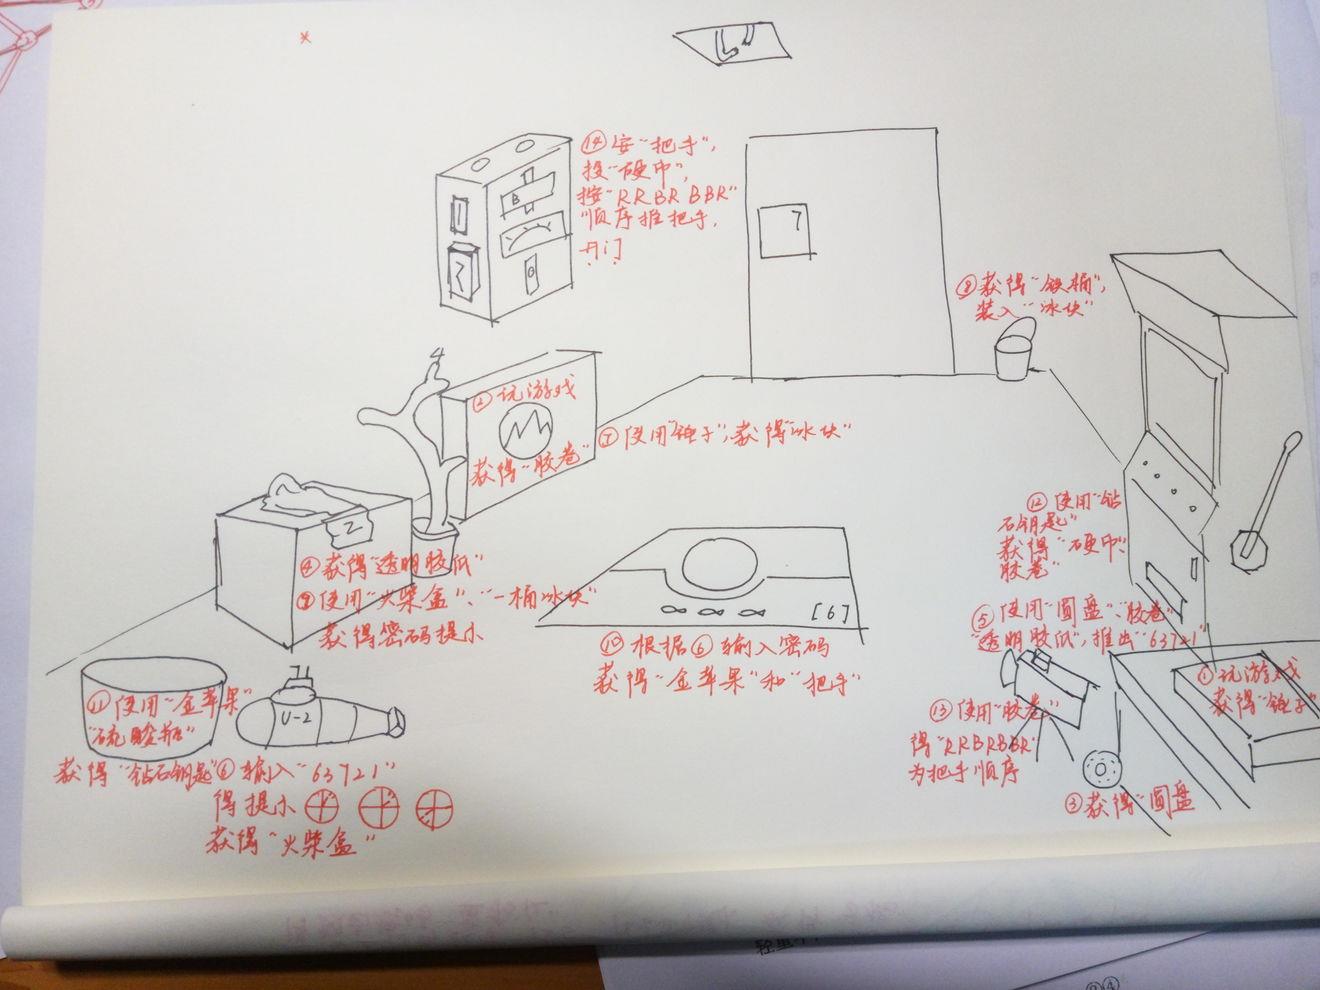 ⑭安“把手”,
投“硬币”,
按“RRBR BBR”
顺序推把手,
开门
B
7
⑧获得“铁桶”,
装入“冰块”
4
②玩游戏
获得“胶卷”
⑦使用“锤子”,获得“冰块”
2
④获得“透明胶纸”
⑨使用“火柴盒”、“一桶冰块”
获得密码提示
[6]
⑩根据⑥输入密码
获得“金苹果”和“把手”
⑫使用“钻
石钥匙”
获得“硬币”、
胶卷”
⑤使用“圆盘”、“胶卷”
“透明胶纸”,推出“63721”
①玩游戏
获得“锤子”
⑪使用“金苹果”
“硫酸瓶”
获得“钻石钥匙”
U-2
⑥输入“63721”
得提示
获得“火柴盒”
⑬使用“胶卷”
得“RRBRBBR”
为把手顺序
③获得“圆盘